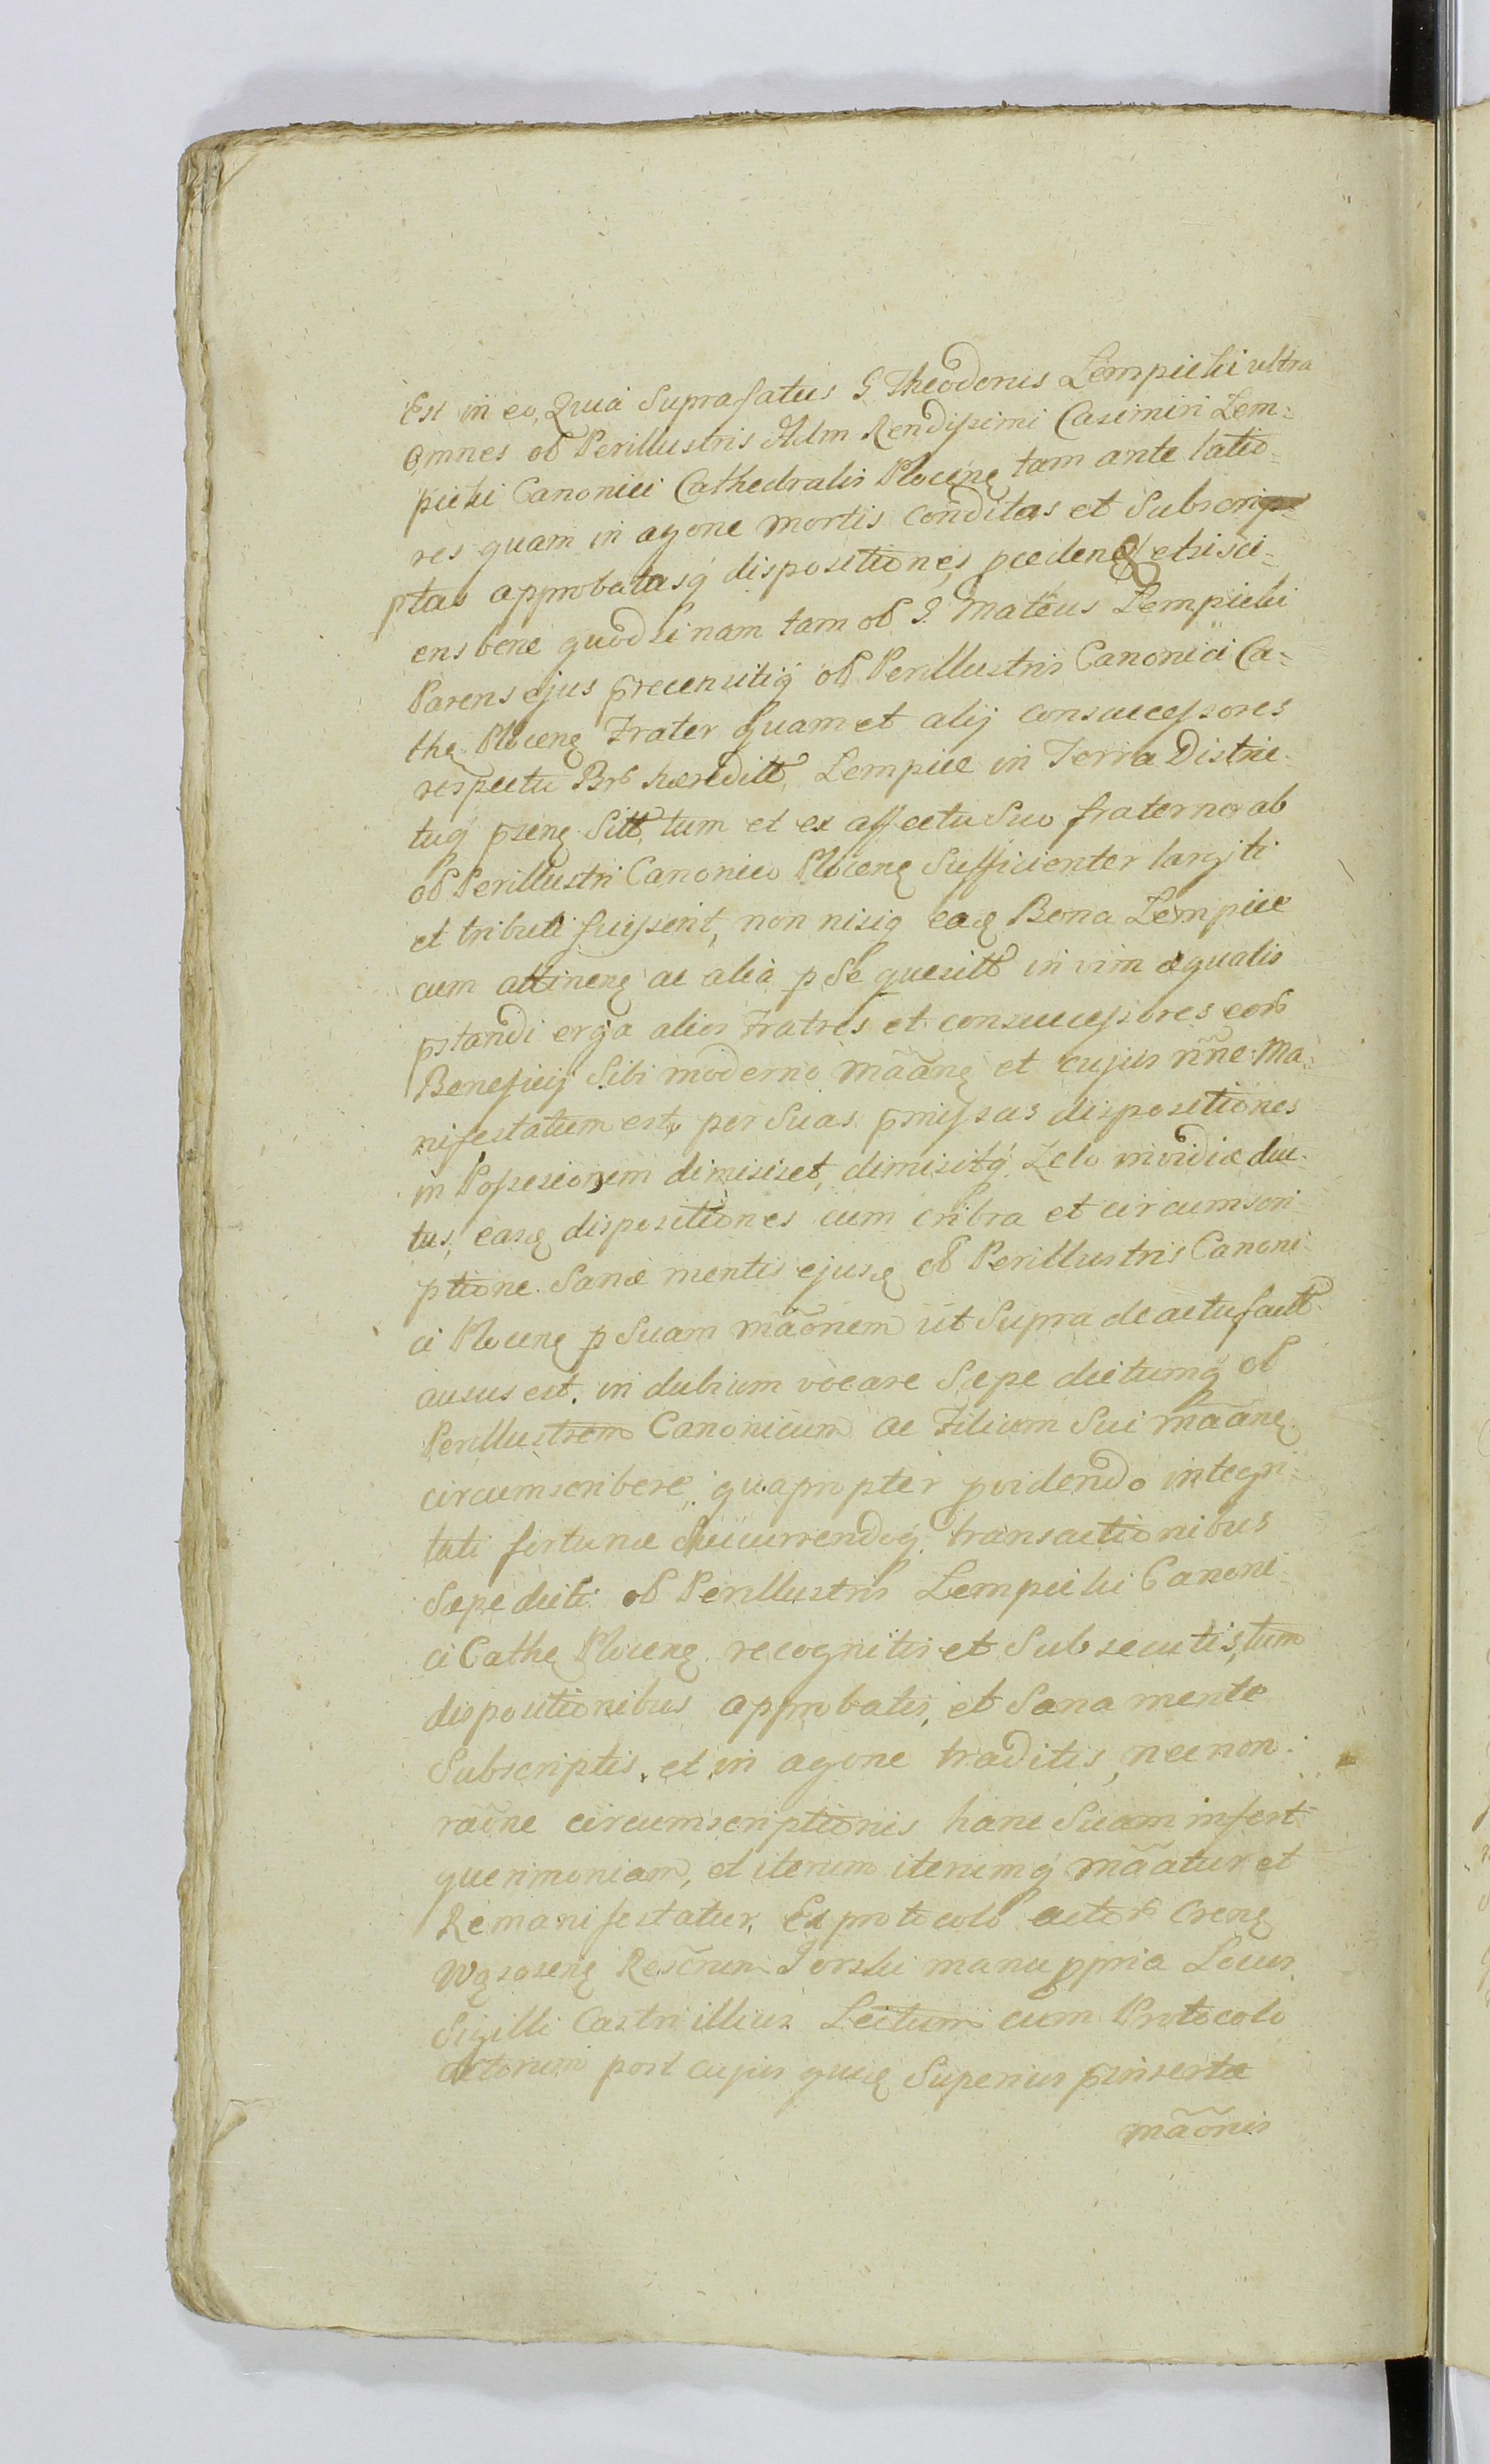 Est in eo, Quia Suprafatus G. Theodorus Lempicki ultra
omnes ol Perillustris Adm Rendissimi Casimiri Lem-
picki Canonici Cathedralis Plocens tam ante latio-
res quam in agone mortis conditas et Subscrip-
ptas approbatasq dispositiones, pcedens etsi sci-
ens bene quod si nam tam ol G. Mateus Lempicki
Parens ejus precensitiq ol Perillustris Canonici Ca-
the Plocens Frater quam et alij consuccessores
respectu Brb haereditt Lempice in Terra Distric-
tuq pzens Sitt, tum et ex affectu Suo fraterno ab
ol Perillustri Canonico Plocens Sufficienter largiti
et tributi fuissent, non nisiq eaq Bona Lempice
cum attinens ac alia p Se quesitt in vim aequalis
pstandi erga alios Fratres et consuccessores eorb
Beneficij Sibi moderno mãans et cujus nñe Ma-
nifestatum est, per Suas pmissas dispositiones
in Possesionem dimisiset, dimisitq Zelo invidiae duc-
tus, easq dispositiones cum cribra et circumscri-
ptione Sanae mentis ejusq ol Perillustris Canoni-
ci Plocens p Suam mãonem ut Supra de actu factt
ausus est in dubium vocare Saepe dictumq ol
Perillustrem Canonicum ac Filium Sui mãans
circumscribere, quapropter pvidendo integri-
tati fortunae Succurrendoq transactionibus
Saepe dicti ol Perillustris Lempicki Canoni-
ci Cathe Plocens recognitis et Subsecutis, tum
dispositionibus approbatis, et Sana mente
Subscriptis, et in agone traditis, necnon
raõne circumscriptionis hanc Suam infert
querimoniam, et iterum iterumq mãatur et
Remanifestatur. Ex protocolo actorb Crens
Wąsosens Rescrum Jorski manu ppria Locus
Sigilli Castri illius Lectum cum Protocolo
Actorum post cujus quis Superius pinsertae
mãonis